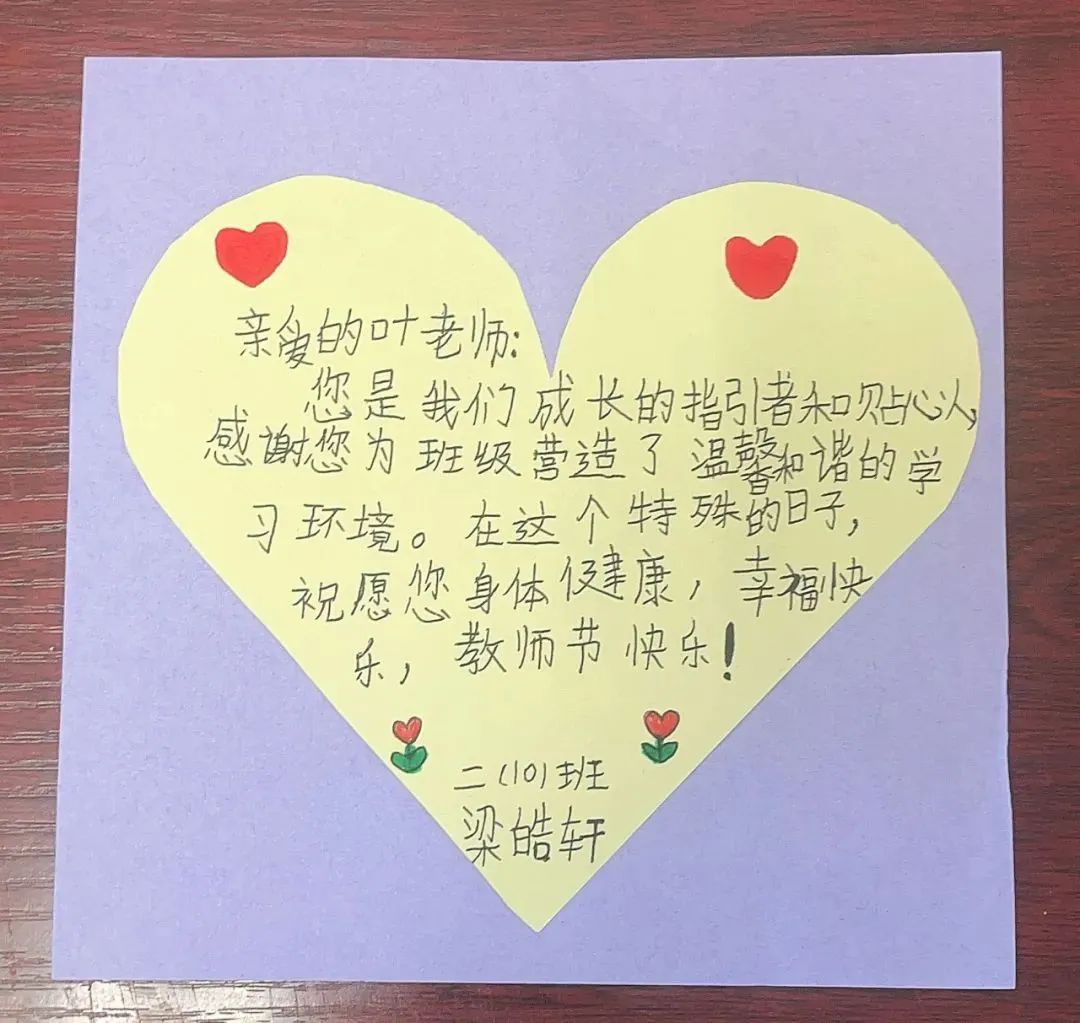 亲爱的叶老师:
您是我们成长的指引者和贴心人,
感谢您为班级营造了温馨和谐的学
习环境。在这个特殊的日子,
祝愿您身体健康,幸福快
乐,教师节快乐!
二(10)班
梁皓轩